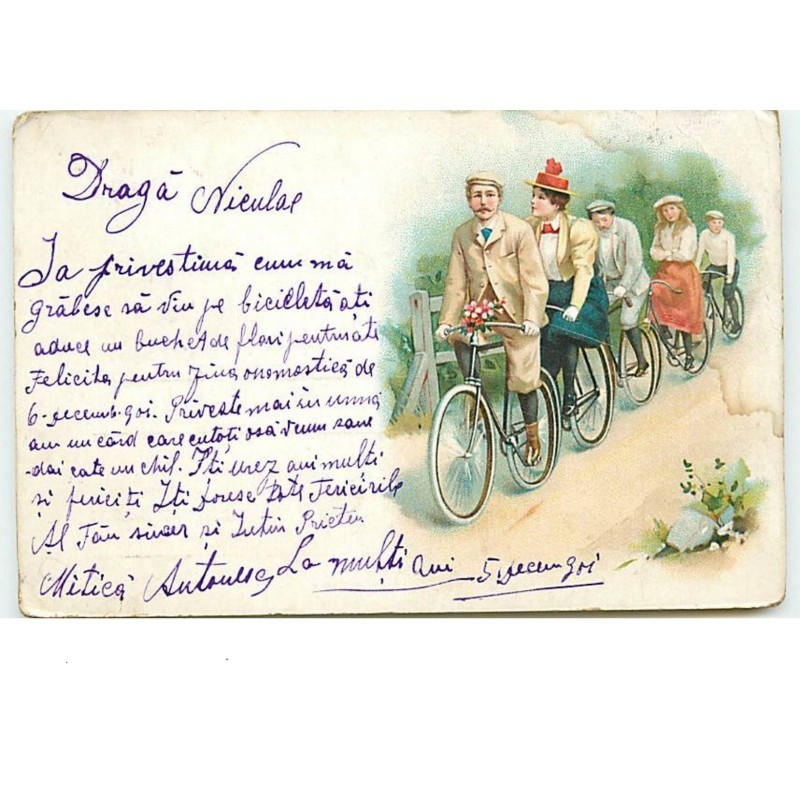 Dragă Niculae
Ia privestimă cum mă
grăbesc să vin pe bicicletă ați
aduce un buchet de flori pentru ate
Felicita pentru ziua onomostică de
6-decemb. 901. Priveste mai în urmă
am un cârd care cu toți o să venim sane
-dai cate un chil. Iți urez ani mulți
și fericiți Iți doresc toate Fericirile
Al Tău sincer și Intim Prieten
Mitică Antonescu La mulți ani 5, decem 901